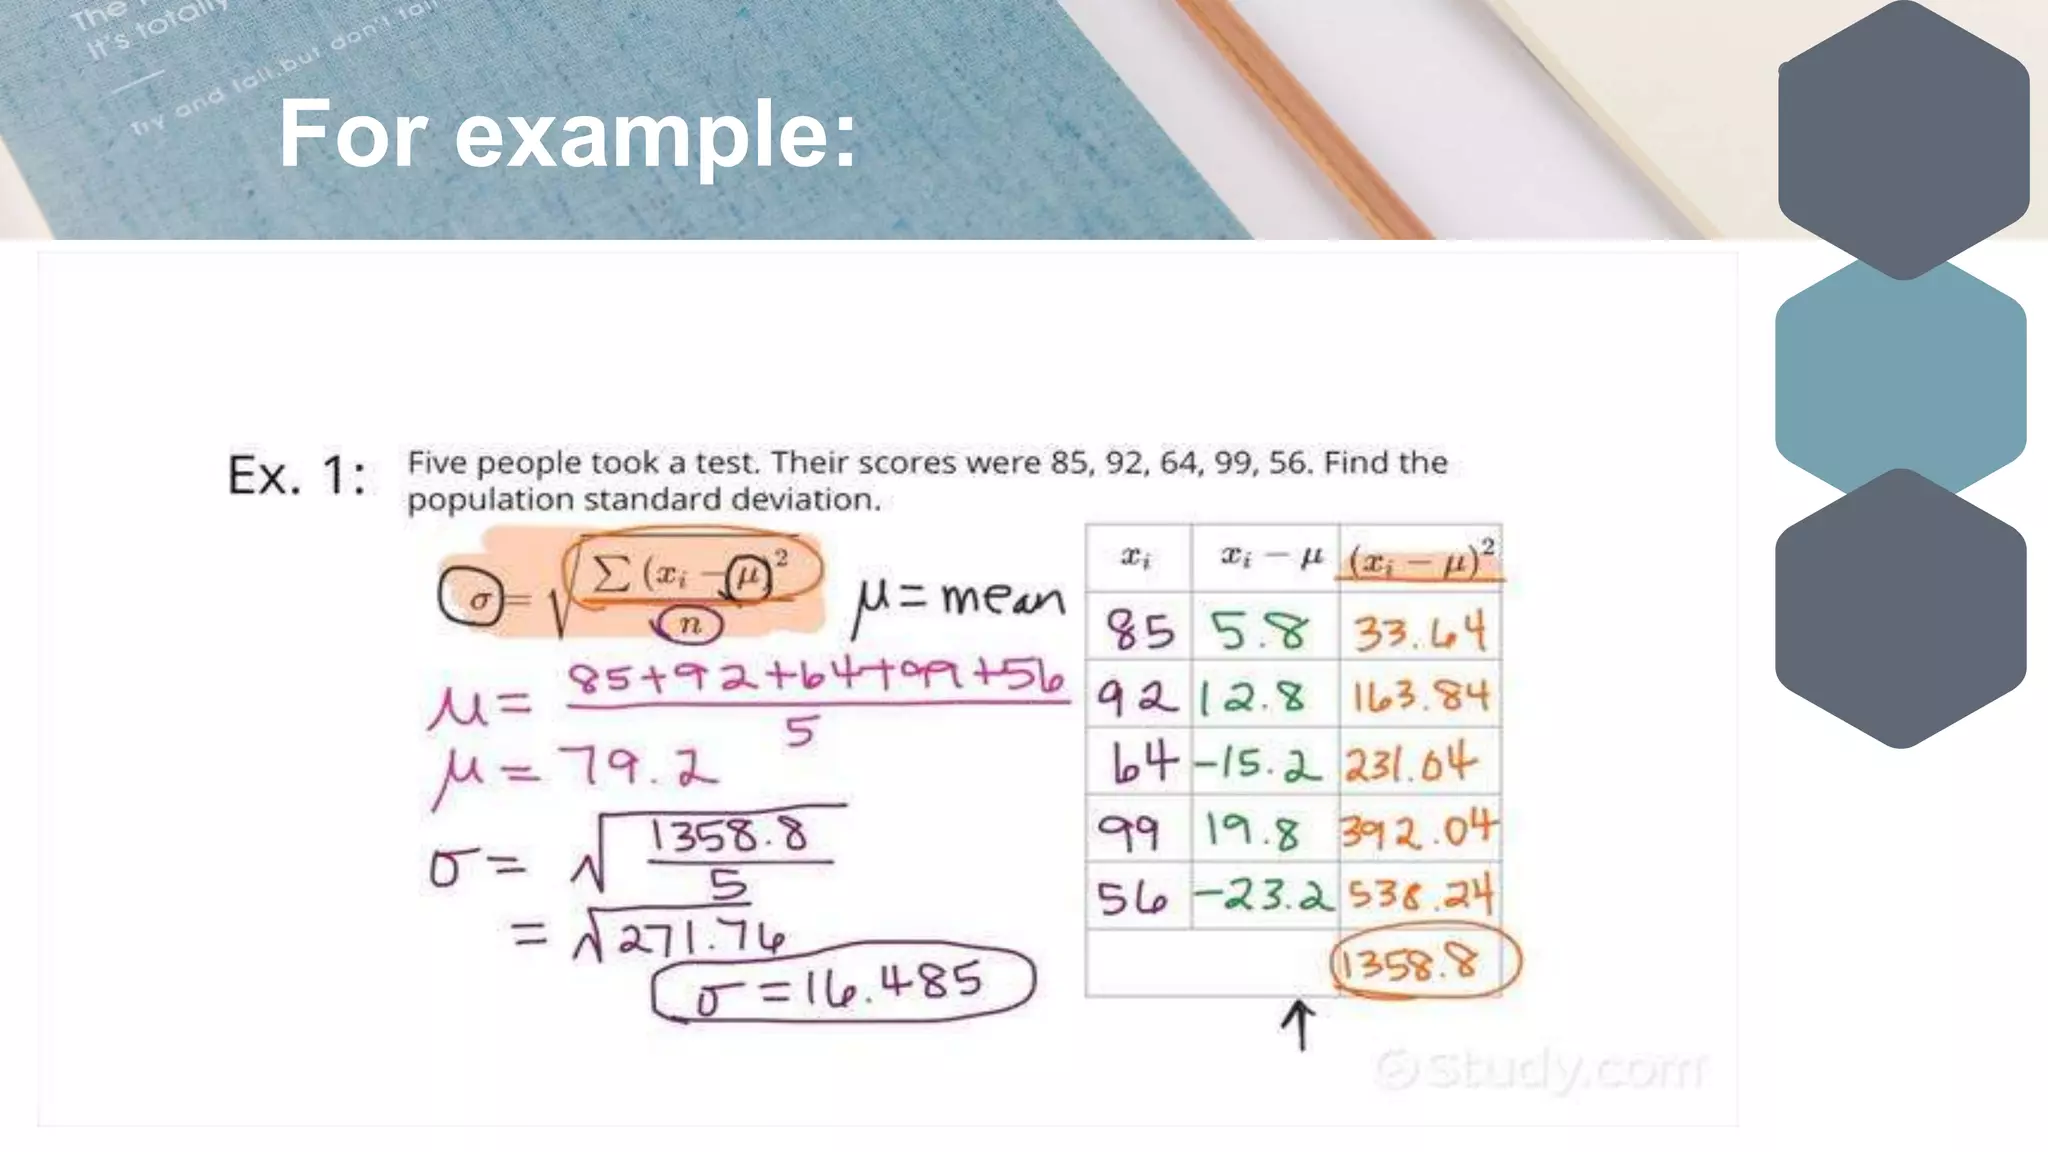 The
It's totally
Try and fail, but don't fail
For example:
Ex. 1: Five people took a test. Their scores were 85, 92, 64, 99, 56. Find the
population standard deviation.
σ = √(∑ (xᵢ − μ)² / n)
μ = mean
μ = (85+92+64+99+56) / 5
μ = 79.2
σ = √(1358.8 / 5)
= √271.76
σ = 16.485
xᵢ xᵢ − μ (xᵢ − μ)²
85 5.8 33.64
92 12.8 163.84
64 -15.2 231.04
99 19.8 392.04
56 -23.2 538.24
1358.8
↑
Study.com